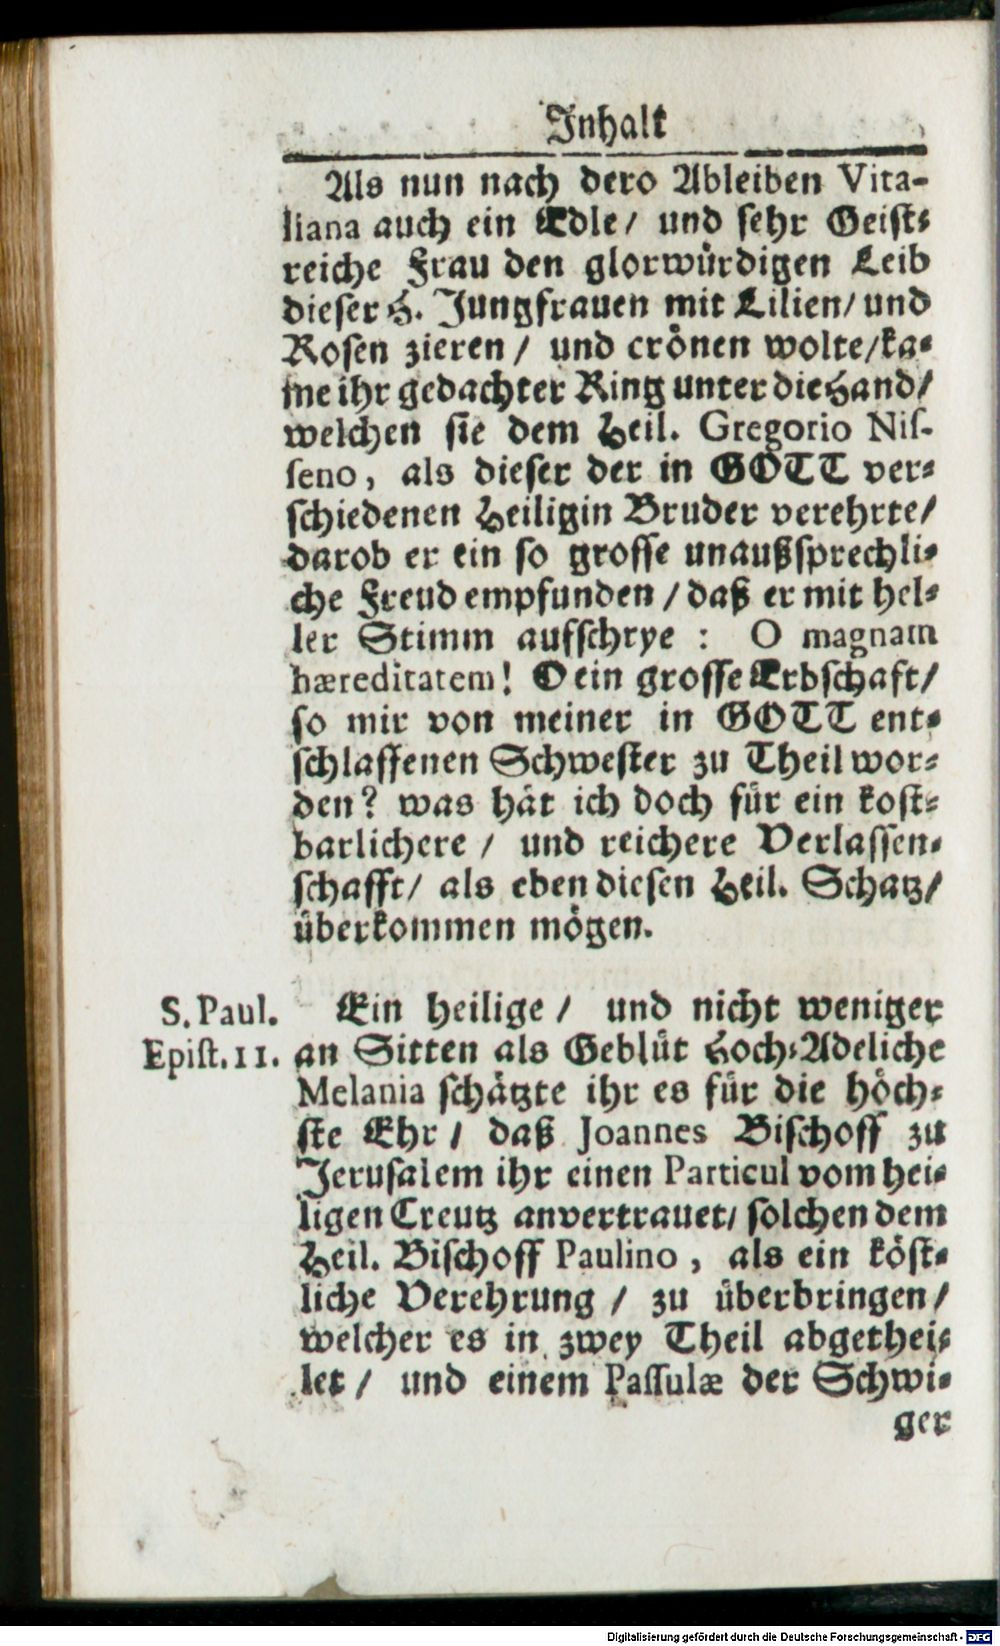 Inhalt
Als nun nach dero Ableiben Vita-
liana auch ein Edle/ und sehr Geist-
reiche Frau den glorwürdigen Leib
dieser H. Jungfrauen mit Lilien/ und
Rosen zieren / und crönen wolte/ka-
me ihr gedachter Ring unter die Hand/
welchen sie dem Heil. Gregorio Nis-
seno, als dieser der in GOTT ver-
schiedenen Heiligin Bruder verehrte/
darob er ein so grosse unaußsprechli-
che Freud empfunden / daß er mit hel-
ler Stimm aufschrye : O magnam
hæreditatem! O ein grosse Erbschaft/
so mir von meiner in GOTT ent-
schlaffenen Schwester zu Theil wor-
den? was hät ich doch für ein kost-
barlichere / und reichere Verlassen-
schafft/ als eben diesen Heil. Schatz/
überkommen mögen.
S. Paul.
Epist. 11.
Ein heilige / und nicht weniger
an Sitten als Geblüt Hoch-Adeliche
Melania schätzte ihr es für die höch-
ste Ehr / daß Joannes Bischoff zu
Jerusalem ihr einen Particul vom hei-
ligen Creutz anvertrauet/ solchen dem
Heil. Bischoff Paulino , als ein köst-
liche Verehrung / zu überbringen/
welcher es in zwey Theil abgethei-
let / und einem Passulæ der Schwi-
ger
Digitalisierung gefördert durch die Deutsche Forschungsgemeinschaft - DFG